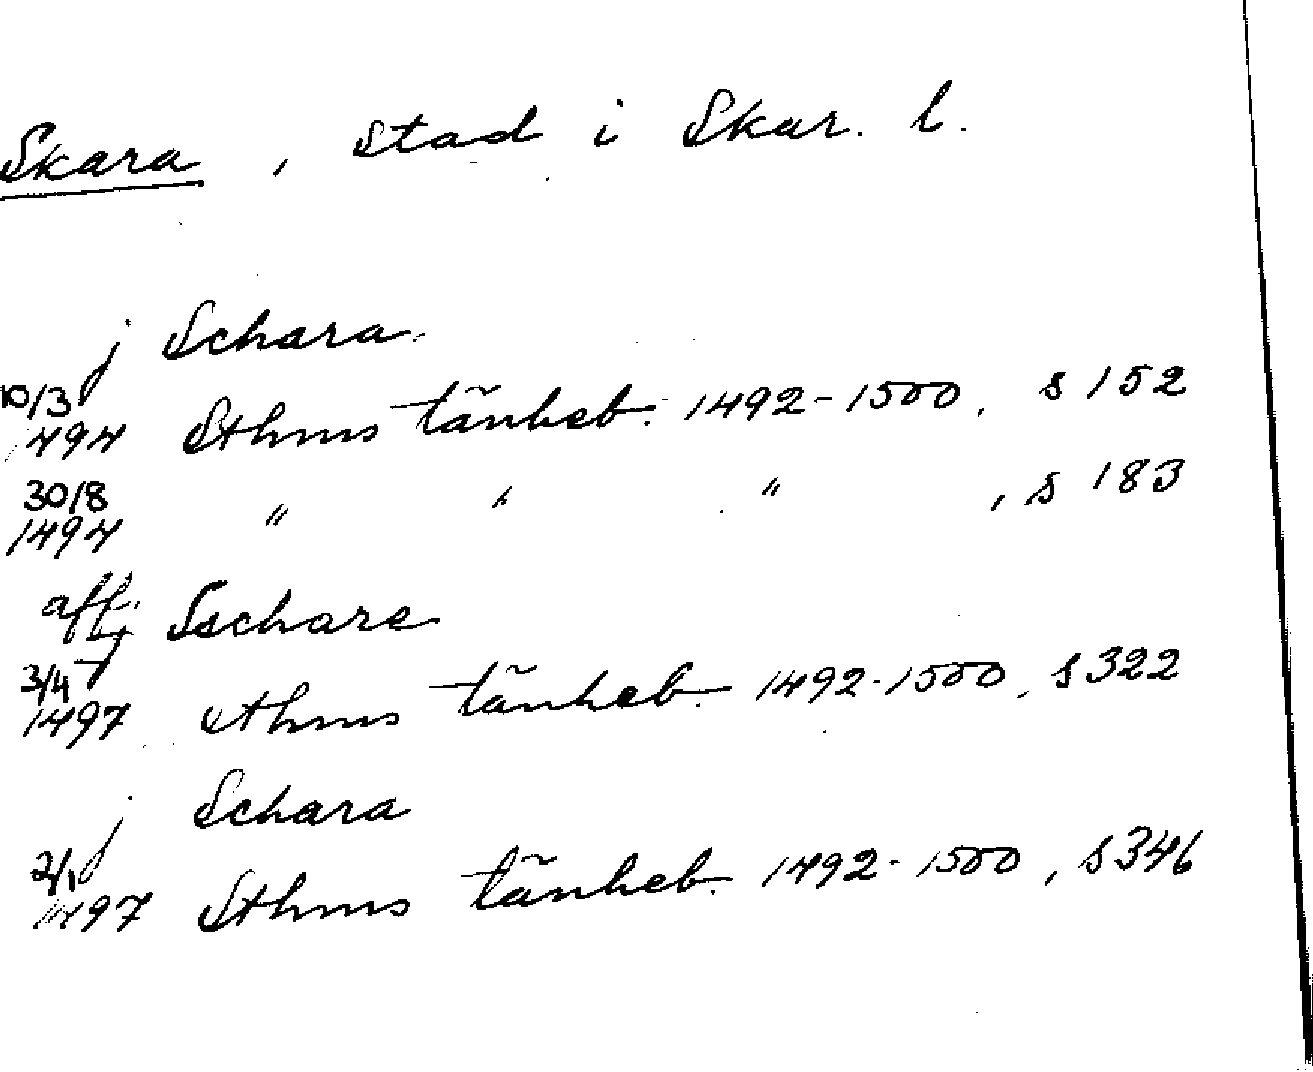 Skara, stad i Skar. l.
j Schara
10/3
1494 Sthms tänkeb. 1492-1500, s 152
30/8
1494 " " " , s 183
aff Sschare
3/4
1497 Sthms tänkeb. 1492-1500, s 322
j Schara
2/1
1497 Sthms tänkeb. 1492-1500, s 346